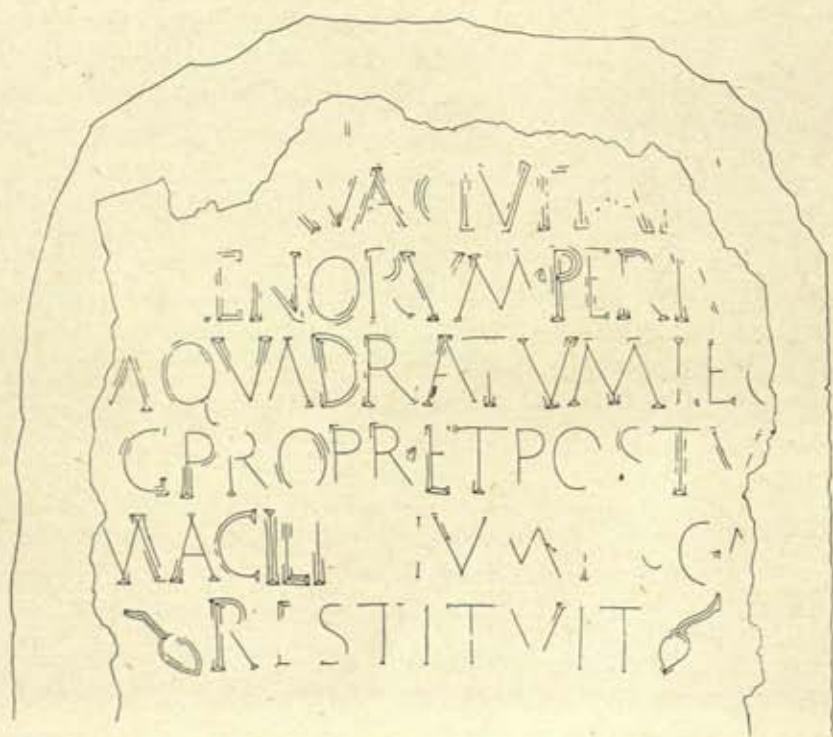 VA CIVITA
ENORVM·PER
A QVADRATVM LE
G PRO PR·ET POSTV
M ACILI IVM
RESTITVIT